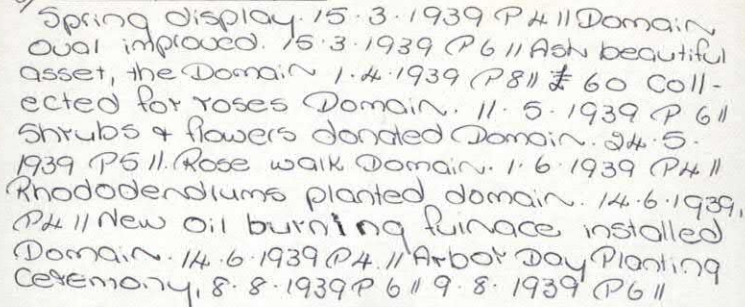 Spring display. 15.3.1939 P4 // Domain
oval improved. 15.3.1939 P6 // Ash beautiful
asset, the Domain 1.4.1939 P8 // £60 Coll-
ected for roses Domain. 11.5.1939 P6 //
Shrubs & flowers donated Domain. 24.5.
1939 P5 //. Rose walk Domain. 1.6.1939 P4 //
Rhododendiums planted domain. 14.6.1939,
P4 // New oil burning furnace installed
Domain. 14.6.1939 P4. // Arbor Day Planting
Ceremony, 8.8.1939 P6 // 9.8.1939 P6 //